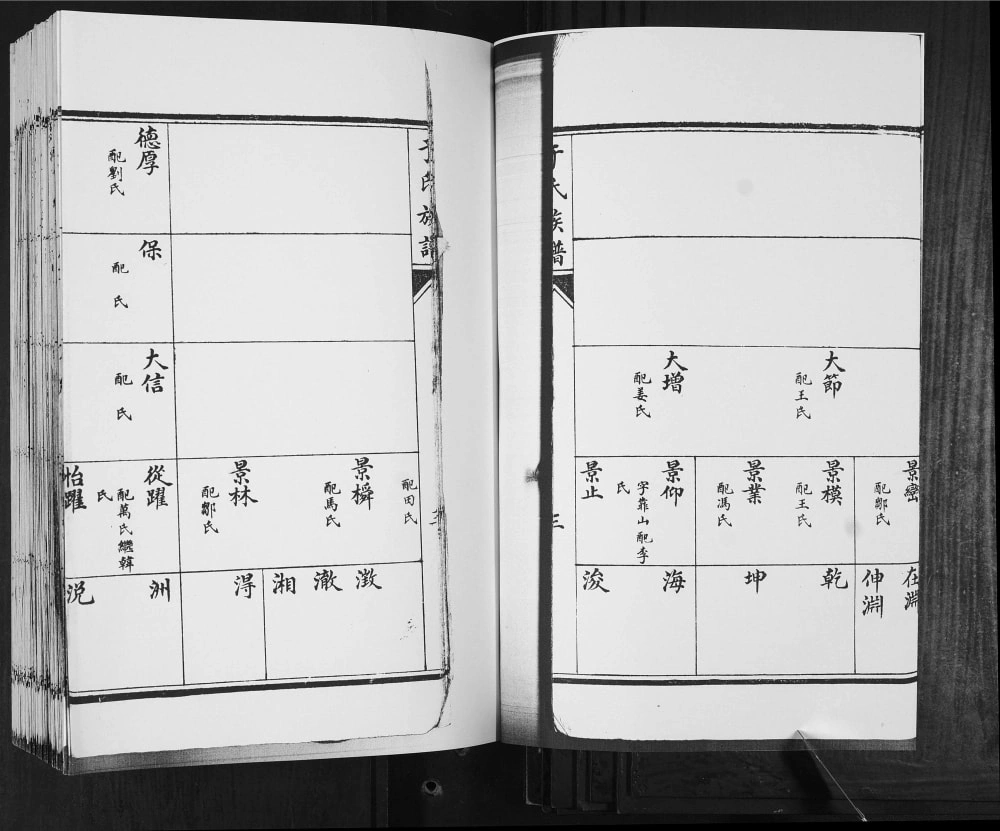 于氏族譜
大節
配王氏
大增
配姜氏
景巒
配鄒氏
景模
配王氏
景業
配馮氏
景仰
字靠山配李
氏
景止
在淵
伸淵
乾
坤
海
浚
于氏族譜
配田氏
景橓
配馬氏
景林
配鄒氏
澂
澈
湘
淂
德厚
配劉氏
保
配 氏
大信
配 氏
從躍
配萬氏繼韓
氏
怡躍
洲
涚